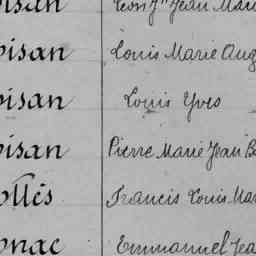 oisan Léon Jn Jean Mari
oisan Louis Marie Aug
oisan Louis Yves
oisan Pierre Marie Jean B
ollès Francis Louis Mar
onac Emmanuel Jea